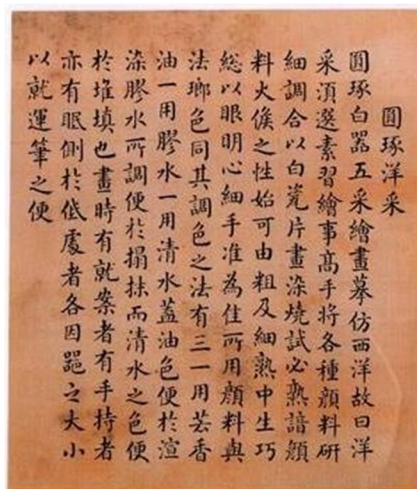 圓琢洋采
圓琢白器五采繪畫摹仿西洋故曰洋
采湏選素習繪事髙手將各種顔料研
細調合以白瓷片畫染燒試必熟諳顔
料火候之性始可由粗及細熟中生巧
総以眼明心細手准為佳所用顔料與
法瑯色同其調色之法有三一用芸香
油一用膠水一用清水蓋油色便於渲
染膠水所調便於搨抹而清水之色便
於堆填也畫時有就案者有手持者
亦有眠側於低處者各因器之大小
以就運筆之便